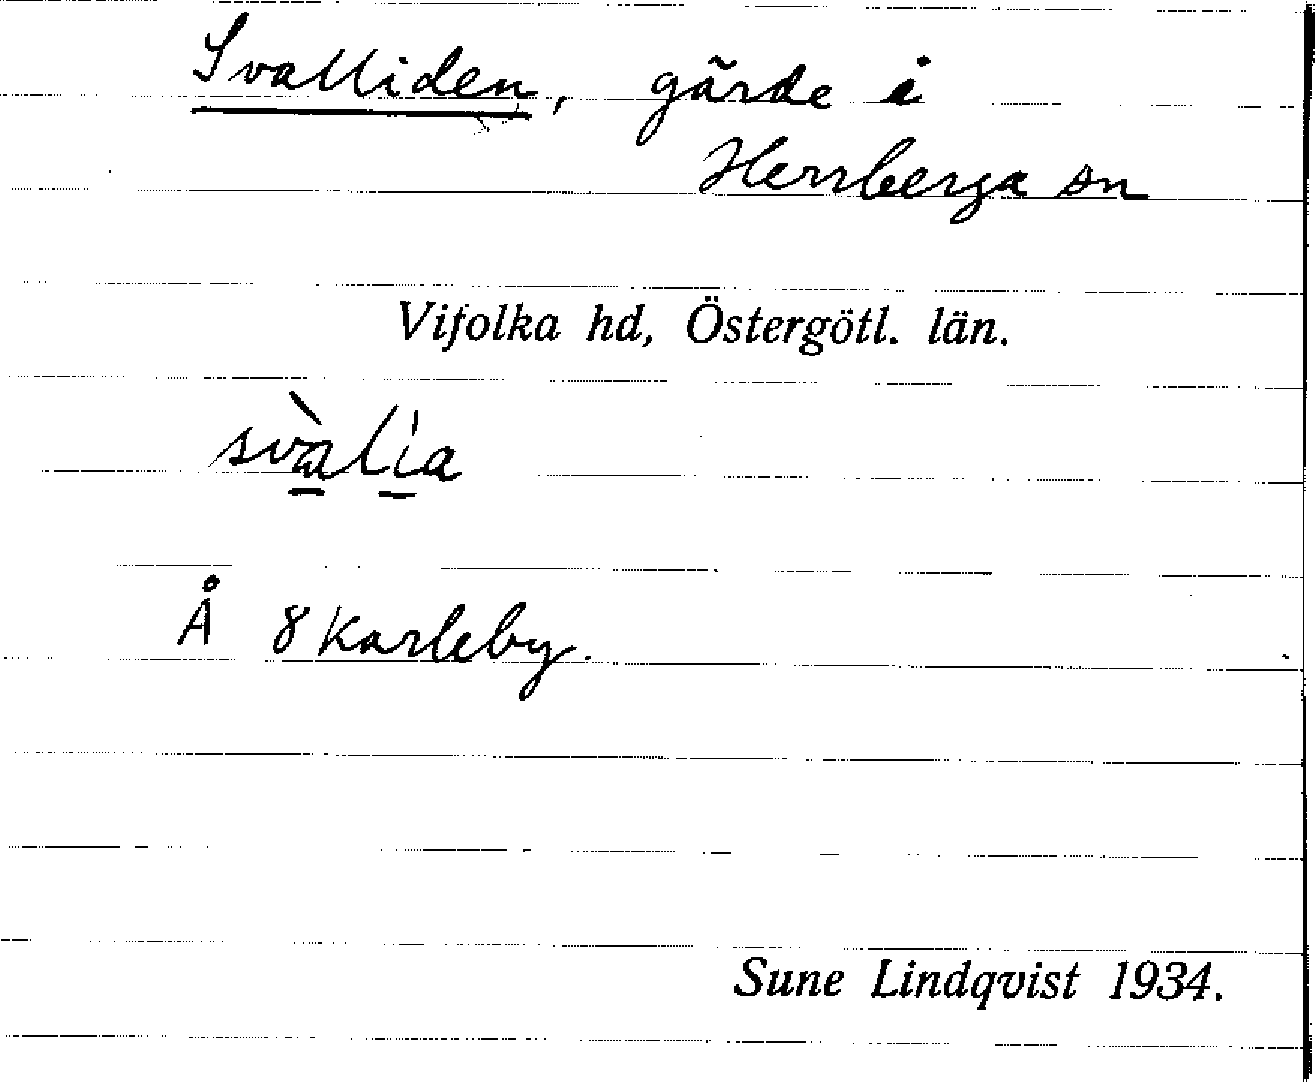 Svalliden, gärde i
Herrberga sn
Vifolka hd, Östergötl. län.
svàlia
Å 8 Karleby.
Sune Lindqvist 1934.